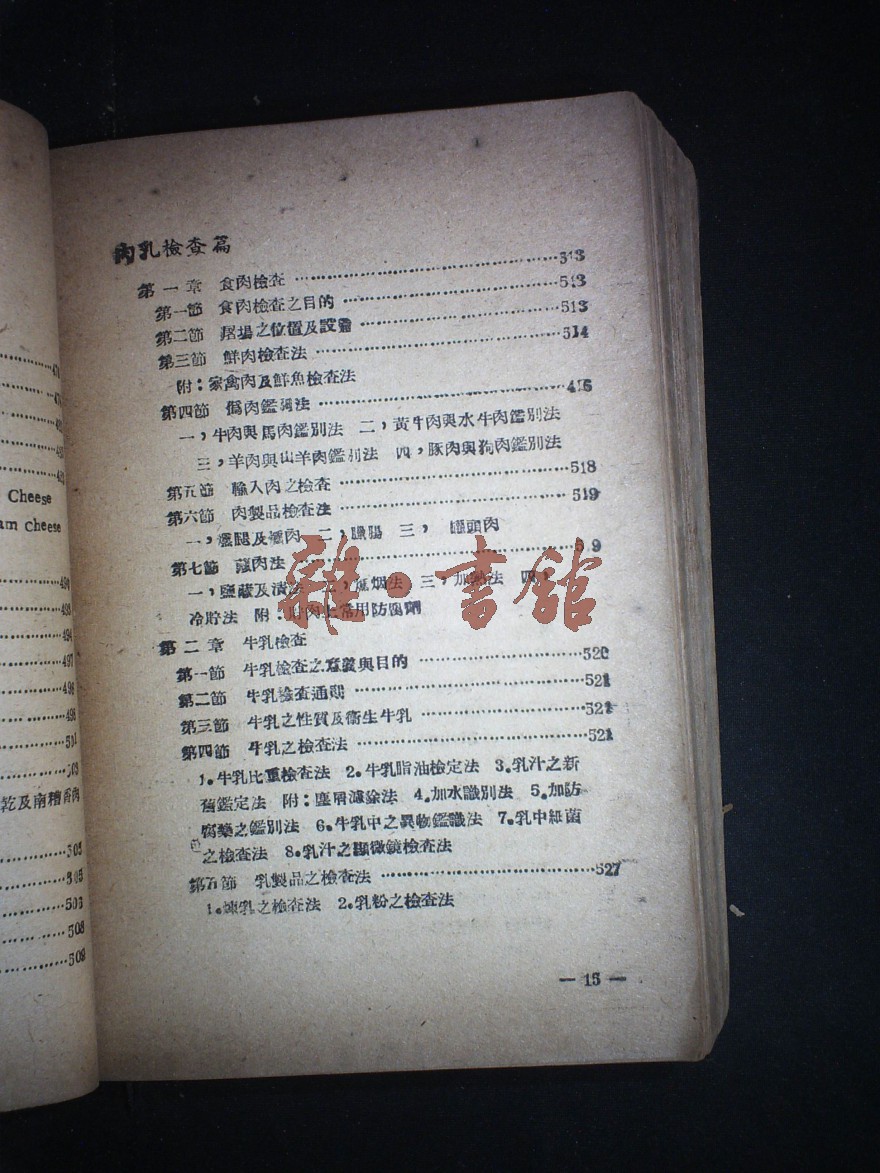 474
Cheese
am cheese
490
493
494
497
498
498
501
503
乾及南糟香肉
505
505
506
508
509
肉乳檢查篇
第一章 食肉檢查 513
第一節 食肉檢查之目的 513
第二節 屠場之位置及設置 513
第三節 鮮肉檢查法 514
附：家禽肉及鮮魚檢查法
第四節 僞肉鑑別法 416
一，牛肉與馬肉鑑別法 二，黃牛肉與水牛肉鑑別法
三，羊肉與山羊肉鑑別法 四，豚肉與狗肉鑑別法
第五節 輸入肉之檢查 518
第六節 肉製品檢查法 519
一，燻腿及燻肉 二，臘腸 三， 罐頭肉
第七節 藏肉法 519
一，鹽藏及漬法 二，燻烟法 三，加熱法 四，
冷貯法 附：貯肉上常用防腐劑
第二章 牛乳檢查
第一節 牛乳檢查之意義與目的 520
第二節 牛乳檢查通則 521
第三節 牛乳之性質及衞生牛乳 521
第四節 牛乳之檢查法 521
1.牛乳比重檢查法 2.牛乳脂油檢定法 3.乳汁之新
舊鑑定法 附：塵屑濾除法 4.加水識別法 5.加防
腐藥之鑑別法 6.牛乳中之異物鑑識法 7.乳中細菌
之檢查法 8.乳汁之顯微鏡檢查法
第五節 乳製品之檢查法 527
1.煉乳之檢查法 2.乳粉之檢查法
— 15 —
雜·書館